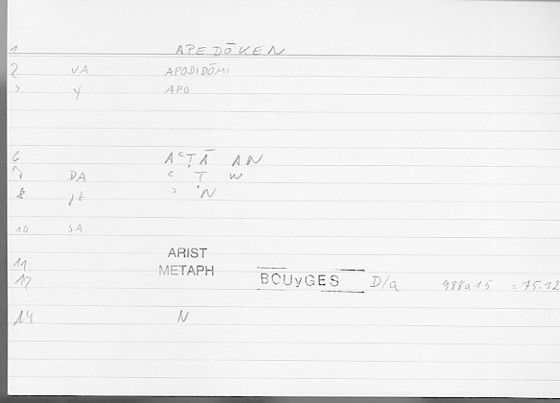 1 APEDŌKEN
2 VA APODIDŌMI
3 y APO
6 AcṬĀ AN
7 DA c Ṭ w
8 jz ɔ 'N
10 SA
ARIST
11 METAPH
12 BOUyGES D/a 988a15 = 75.12
14 N